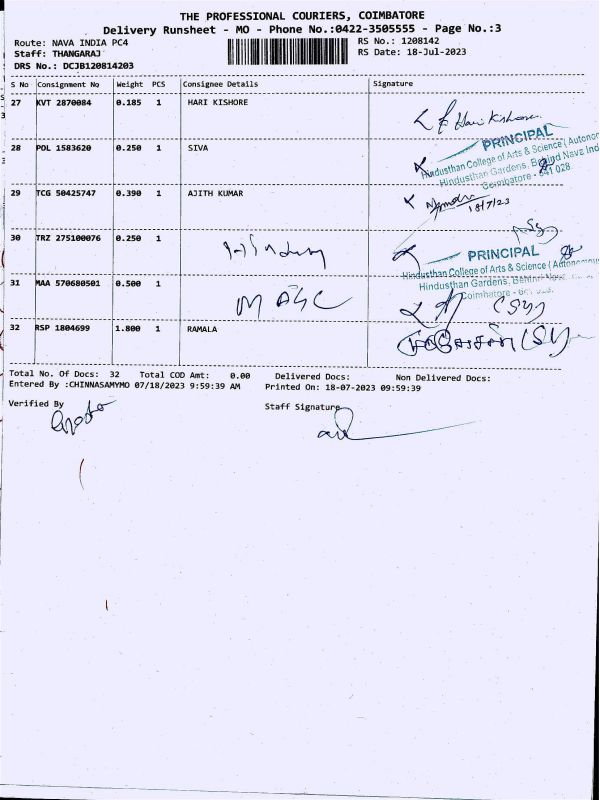 THE PROFESSIONAL COURIERS, COIMBATORE
Delivery Runsheet - MO - Phone No.:0422-3505555 - Page No.:3
Route: NAVA INDIA PC4 RS No.: 1208142
Staff: THANGARAJ RS Date: 18-Jul-2023
DRS No.: DCJB120814203
S No Consignment No Weight PCS Consignee Details Signature
27 KVT 2870084 0.185 1 HARI KISHORE
Hari Kishore
28 POL 1583620 0.250 1 SIVA
PRINCIPAL
Hindusthan College of Arts & Science (Autonom
Hindusthan Gardens, Behind Nava Ind
Coimbatore - 641 028
29 TCG 50425747 0.390 1 AJITH KUMAR
18/7/23
30 TRZ 275100076 0.250 1
PRINCIPAL
Hindusthan College of Arts & Science (Autonomous
Hindusthan Gardens, Behind
Coimbatore
31 MAA 570680501 0.500 1
32 RSP 1804699 1.800 1 RAMALA
Total No. Of Docs: 32 Total COD Amt: 0.00 Delivered Docs: Non Delivered Docs:
Entered By :CHINNASAMYMO 07/18/2023 9:59:39 AM Printed On: 18-07-2023 09:59:39
Verified By Staff Signature